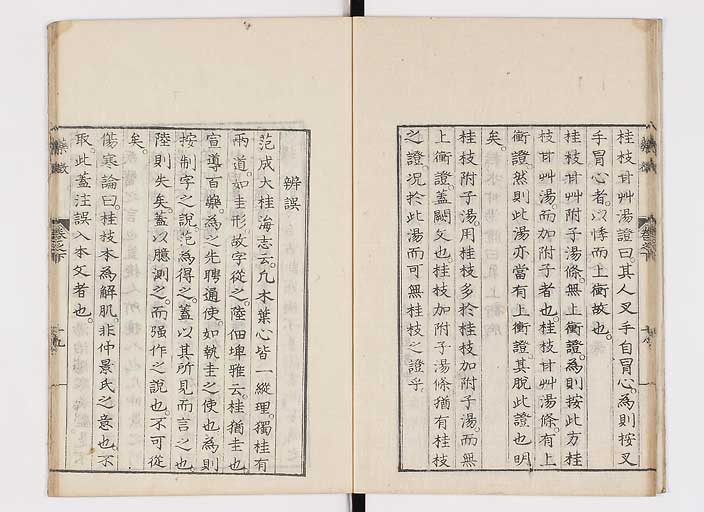 桂枝甘艸湯證曰。其人叉手自冒心。爲則按叉
手冒心者。以悸而上衝故也。
桂枝甘艸附子湯條。無上衝證。爲則按此方桂
枝甘艸湯。而加附子者也。桂枝甘艸湯條。有上
衝證。然則此湯亦當有上衝證。其脫此證也明
矣。
桂枝附子湯。用桂枝多於桂枝加附子湯。而無
上衝證。蓋闕文也。桂枝加附子湯條。猶有桂枝
之證。況於此湯而可無桂枝之證乎。
辨誤
范成大桂海志云。凡木葉心皆一縱理。獨桂有
兩道。如圭形。故字從之。陸佃埤雅云。桂猶圭也。
宣導百藥。爲之先聘通使。如執圭之使也。爲則
按制字之說。范爲得之。蓋以其所見而言之也。
陸則失矣。蓋以臆測之。而强作之說也。不可從
矣。
傷寒論曰。桂枝本爲解肌。非仲景氏之意也。不
取。此蓋注誤入本文者也。
藥徵
卷之下
十九